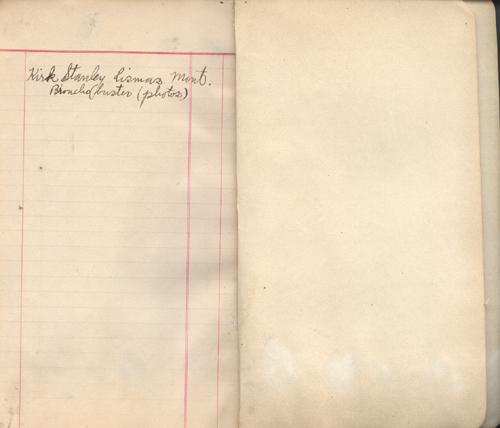 Kirk Stanley Lismas Mont.
Broncho buster (photos)